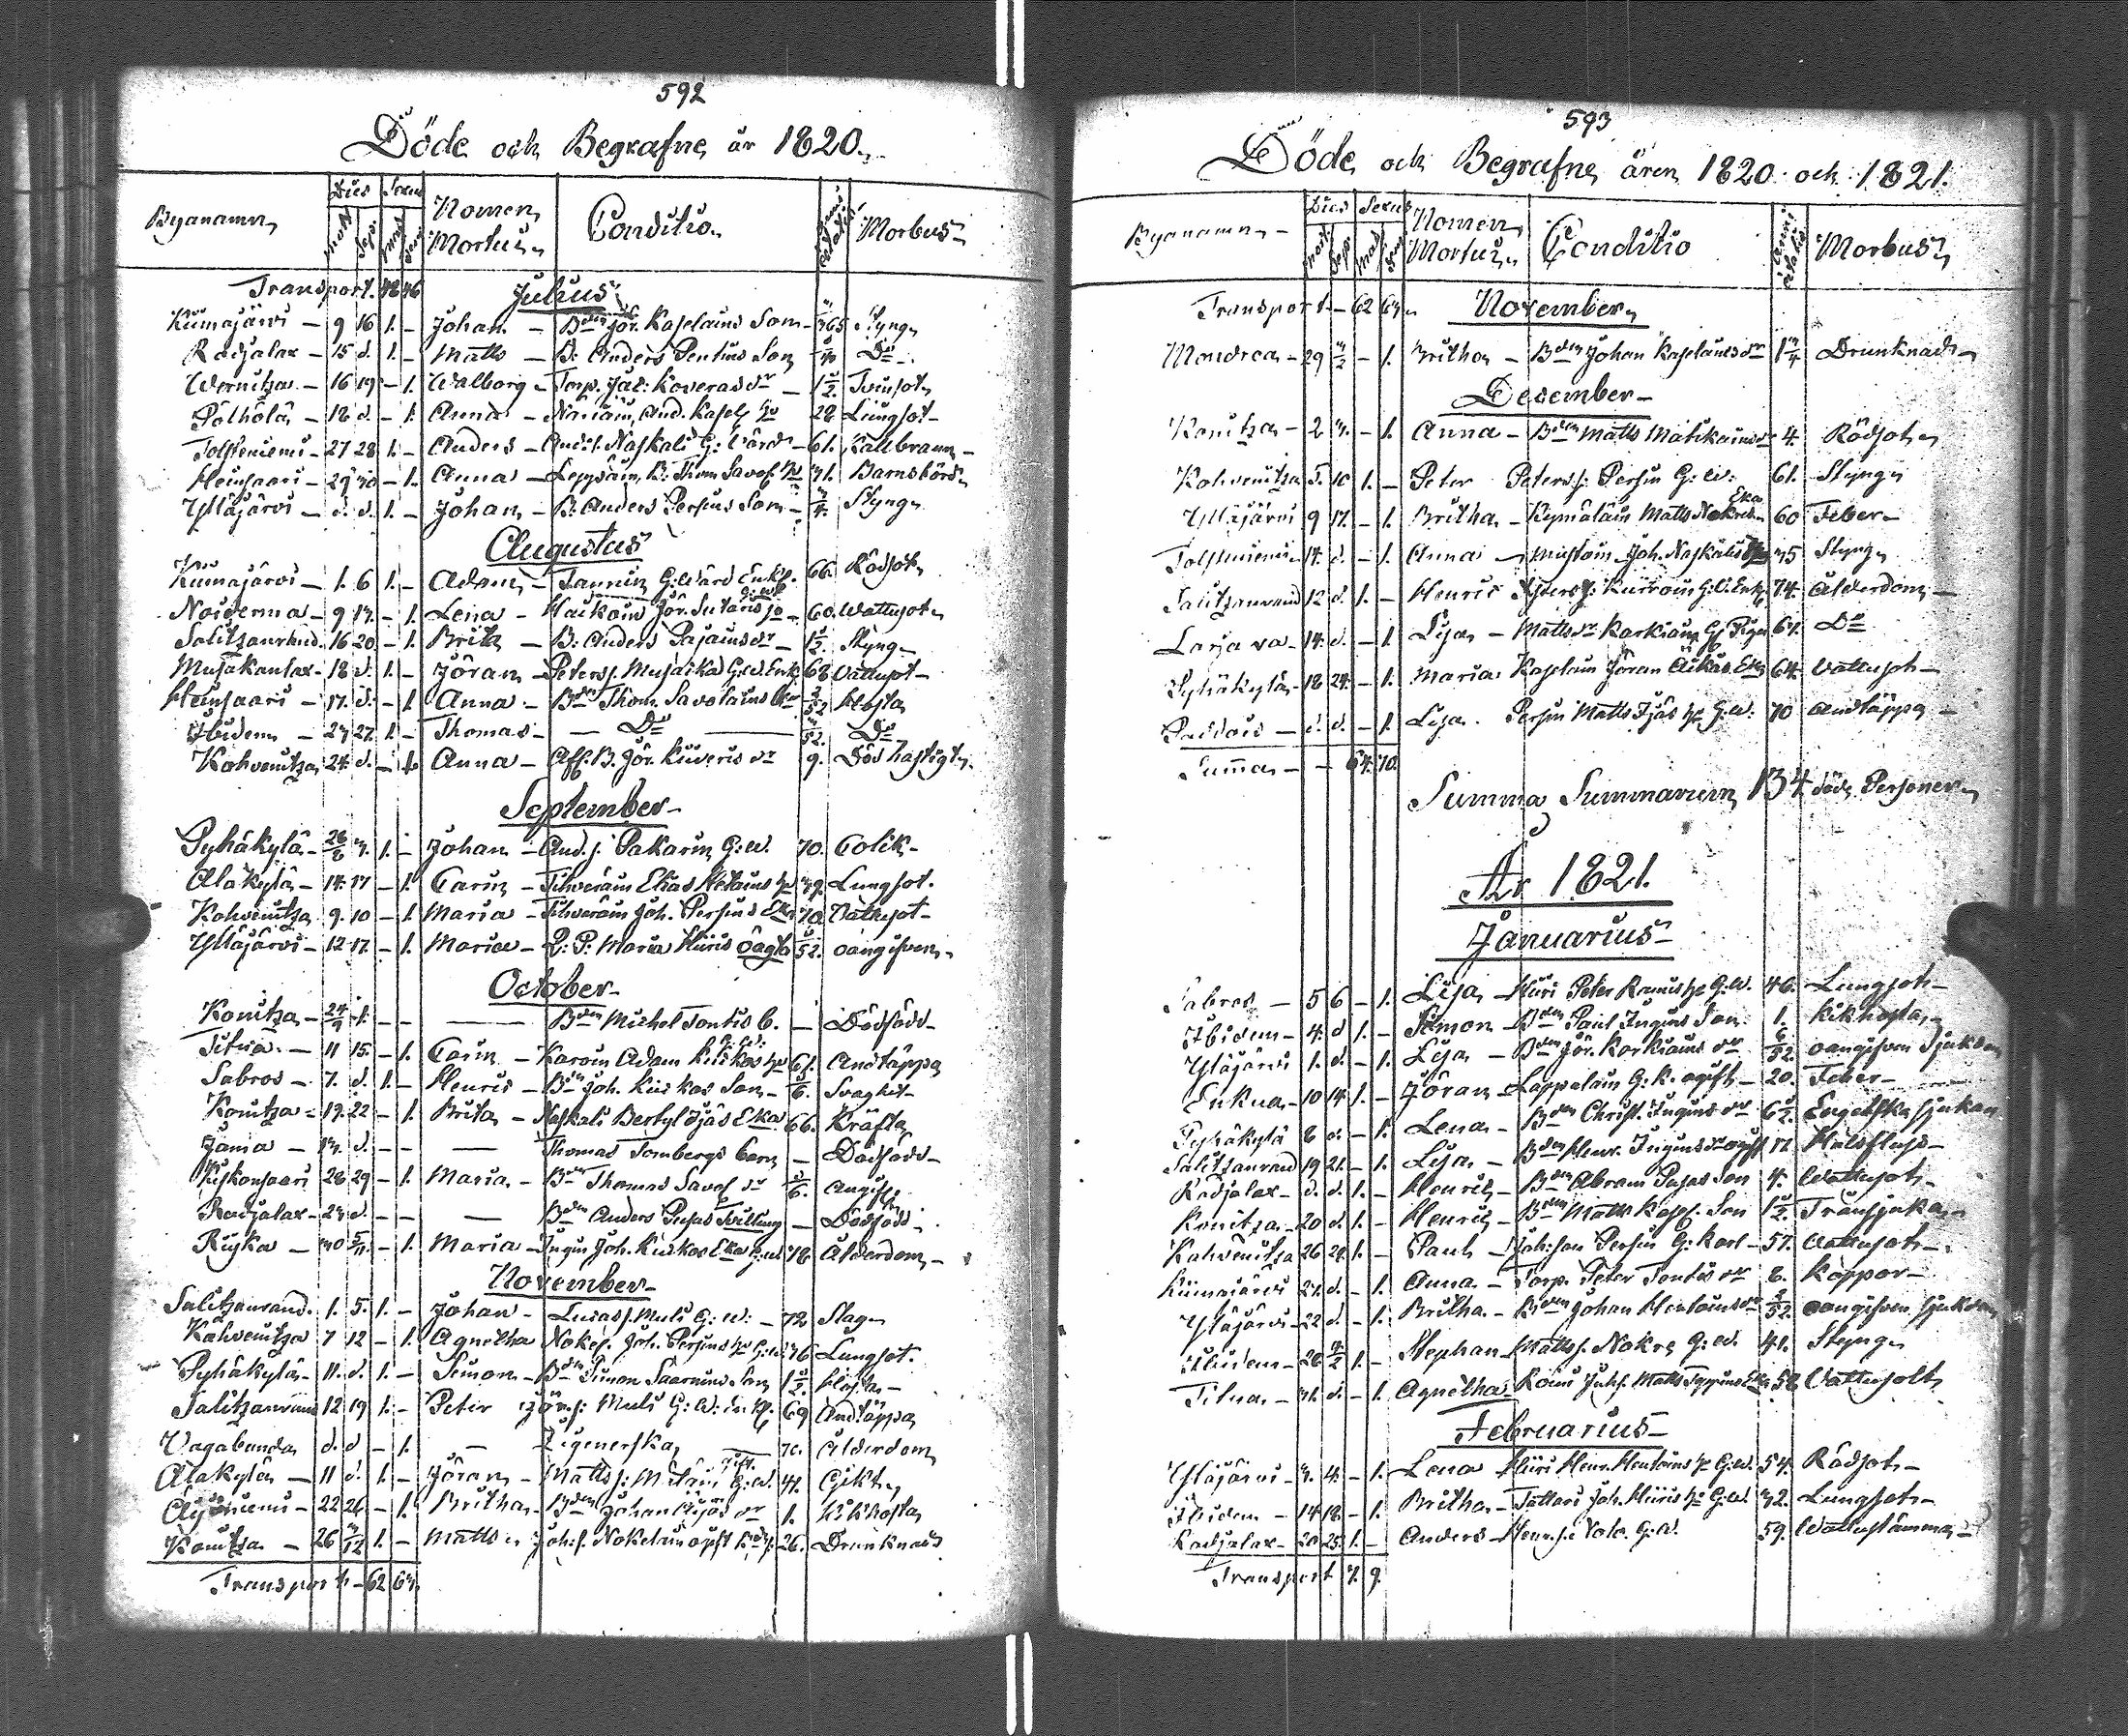 592
Döde och Begrafne år 1820.
Byanamn Dies Sexus Nomen Mortui Conditio Morbus
Transport. 48 46 Julius
Kiimajärvi - 9 16 1. - Johan - Bden Jör. Kapelains Son Styng
Radjalax - 15 d. 1. - Matts - B: Anders Pentins Son Do
Wernitza - 16 19 - 1. Walborg - Torp. Jac: Koveras dr 1 1/2 Tvinsot
Pölhölä - 18 d. - 1. Anna - And. Kapel. hu 28 Lungsot
Tolsteniemi - 27 28 1. - Anders - And: s. Naskali G: Värd 61. Kallbrann
Heinsaari - 29 30 - 1. Anna - Leppäin, B: Thom Savol. hu 31. Barnsbörd
Yläjärvi - d. d. 1. - Johan - B. Anders Persins Son - 3/4. Styng
Augustus
Kiimajärvi - 1. 6 1. - Adam - Tannin G: Värd Enkl. 66. Rödsot
Noidemma - 9 13 - 1. Lena - Haikoin Jör. Sutaris hu 60. Wattusot
Salitzanrand. 16 20 - 1. Brita - B: Anders Pajains dr - 1/2. Styng
Musakanlax - 18 d. 1. - Jöran - Peters s. Musaika G: W. Enk 68 Vattusot
Heinsaari - 17. d. - 1 Anna - Bdn Thom. Savolains 2/52 Hosta
Ibidem - 23 27. 1. - Thomas - Do 3/52. Do
Kohvenitza 24. d. - 1. Anna - Aff. B. Jör. Kiiveris dr 9. Död hastigt
September
Pyhäkylä - 28/8 3. 1. - Johan - And. s. Pakarin G: W. 70. Colik
Alakylä - 14. 17 - 1. Carin - Tihveräin Elias Hetains hu 39. Lungsot.
Kohvenitza 9. 10 - 1. Maria - Tihveräin Joh. Persins Eka 70. Vattusot
Yläjärvi - 12 17. - 1. Maria - Q: P: Maria Hiiris oägta 5/52. oangifven
October
Konitza - 24/9 1. - - Bden Michel Tontis b. - Dödfödd
Titua - 11 15. - 1. Carin - Karoin Adam Kiiskos hu 61. Andtäppa
Sabros - 7. d. 1. - Henric - Bdn Joh. Kiiskos Son 5/6. Svaghet
Konitza - 19. 22 - 1. Brita - Naskali Bertil Ijäs Eka 66. Kräfta
Jama - 13. d. - - Thomas Tombergs barn - Dödfödd
Kiskonsaari 28 29 - 1. Maria - Bdn Thomas Savol. dr 5/6. Angift
Radjalax - 23 d. - - Bden Anders Pusas Tvilling - Dödfödd
Rijska - 30 5/11. - 1. Maria - Ingin Joh. Kiiskos Eka G: W 78 Ålderdom
November
Salitzanrand. 1. 5. 1. - Johan - Lucas s. Muli G: W: - 72 Slag
Kahvenitza 7 12 - 1. Agnetha Nokel. Joh. Persins hu G: W 36 Lungsot.
Pyhäkylä - 11. d. 1. - Simon - Bdn Simon Saarnins Son 1 1/2. Hosta
Salitzanrand 12 19 1. - Peter Jör. s: Muli G: W: Enkl. 69 Andtäppa
Vagabunda d. d - 1. - Zigenerska 70. Ålderdom
Alakylä - 11 d. 1. - Jöran - Matts s: G: W. 41. Gikt
22 26 - 1. Britha - Bden Johan dr 1. Kikhosta
Konitza - 26 3/12 1. - Matts Joh: s. Nokelain ogift 26. Drunknade
Transport - 62 63
593
Döde och Begrafne åren 1820 och 1821.
Byanamn Dies Sexus Nomen Mortui Conditio Morbus
Transport - 62 63 November
Mondrea - 29 3/12 - 1. Britha - Bden Johan Kapelains dr 1 3/4 Drunknade
December
Konitza - 2 3. - 1. Anna - Bden Matts Matikains dr 4. Rödsot
Kohvenitza 5. 10 1. - Peter Peters s: Persin G: W: 61. Styng
Yläjärvi 9 17. - 1. Britha - Kymäläin Matts Nokres Eka 60 Feber
Tolsteniemi - 14. d. - 1. Anna - Mustoin Joh. Naskalis 35 Styng
Salitzanrand 12 d. 1. - Henric Kurroin G: W. Enkl 74. Ålderdom
Larjava - 14. d. - 1 Lisa - Matts dr Karkiain Gl. Piga 67. Do
Pyhäkylä - 18 24. - 1. Maria Kapelain Jöran Äikäs Eka 64. Vattusot
d. d. - 1. Lisa. Persin Matts Ijäs hu G: W: 70 Andtäppa
Summa - - 64. 70.
Summa Summarum 134 döde Personer
År 1821.
Januarius
Sabros - 5 6 - 1. Lisa - Hiiri Peter hu G: W. 46. Lungsot
Ibidem - 4. d 1. - Simon - Bden Paul Ingins Son 1. Kikhosta
Yläjärvi 1. d. - 1. Lisa - Bden Jör. Karkiains dr 6/52. oangifven Sjukdom
Enkua - 10 14 1. - Jöran Lappalain G: K. ogift - 20. Feber
Pyhäkylä 8 d. - 1. Lena - Bden Christ. Ingins dr 6 1/2. Engelska Sjukan
Salitzanrand 19 21. - 1. Lisa - Bden Henr. Ingins dr ogift 17. Halsfluss
Radjalax - d. d. 1. - Henric - Bden Abram Pusas Son 4. Wattusot
Konitza - 20 d. 1. - Henric - Bden Matts Kapel. Son 1 1/2. Trånsjukan
Kahvenitza 26 28 1. - Paul - Joh: son Persin G: Karl - 57. Vattusot
Kiimajärvi 27. d. - 1. Anna - Torp. Peter Tontis dr 8. Koppor
Yläjärvi - 22 d - 1. Britha - Bden Johan Hentoins dr 2/52. oangifven sjukdom
Ibidem - 28 4/2 1. - Stephan - Matts s. Nokre G: W. 41. Styng
Titua - 31. d. - 1. Agnetha Matts Eka 58 Vattusot
Februarius
Yläjärvi - 3. 4. - 1. Lena Hiiri Henr. Hentoins hu G: W. 54. Rödsot
Ibidem - 14 18 - 1. Britha - Tattari Joh. Hiiris hu G: W. 32. Lungsot
Radjalax - 20 25. 1. - Anders - Henr. s: G: W. 59. Wattustämma
Transport 7. 9.